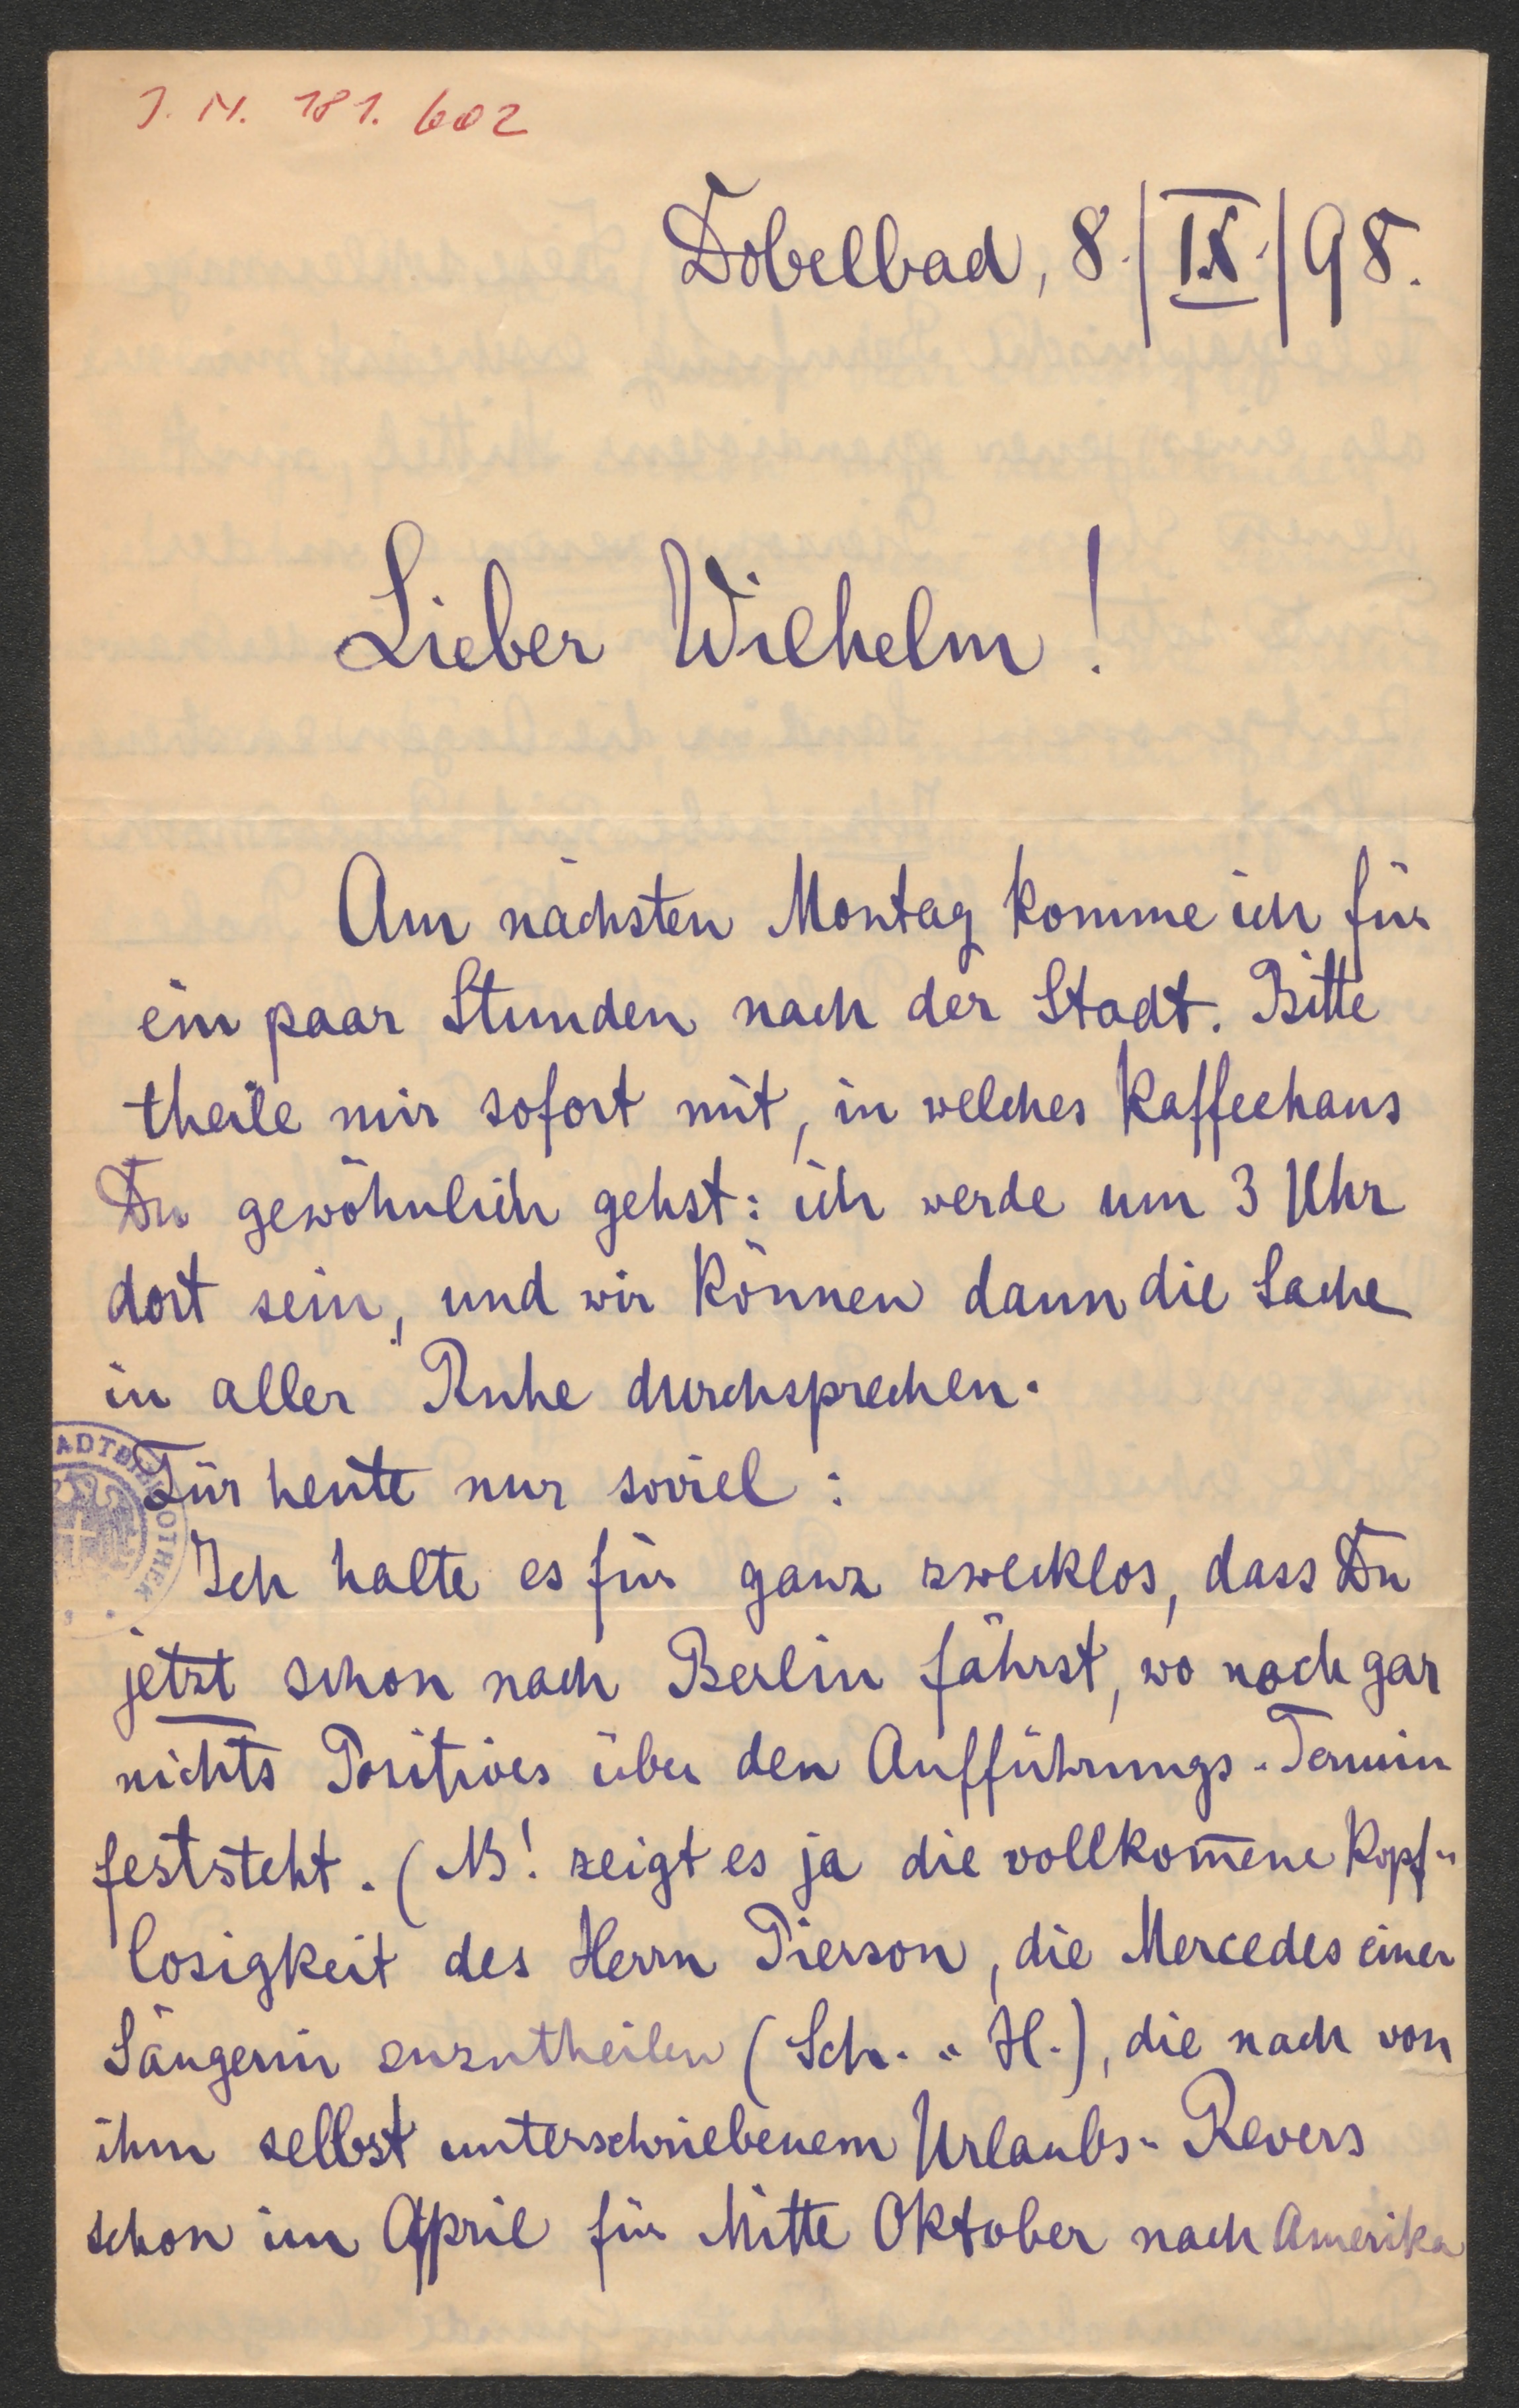 J. N. 181. 602
Dobelbad, 8./IX./98.
Lieber Wilhelm!
Am nächsten Montag komme ich für
ein paar Stunden nach der Stadt. Bitte
theile mir sofort mit, in welches Kaffeehaus
Du gewöhnlich gehst: ich werde um 3 Uhr
dort sein, und wir können dann die Sache
in aller Ruhe durchsprechen.
Für heute nur soviel:
Ich halte es für ganz zwecklos, dass Du
jetzt schon nach Berlin fährst, wo noch gar
nichts Positives über den Aufführungs-Termin
feststeht. (NB! zeigt es ja die vollkom̅ene Kopf-
losigkeit des Herrn Pierson, die Mercedes einer
Sängerin zuzutheilen (Sch.-H.), die nach von
ihm selbst unterschriebenem Urlaubs-Revers
schon im April für Mitte Oktober nach Amerika